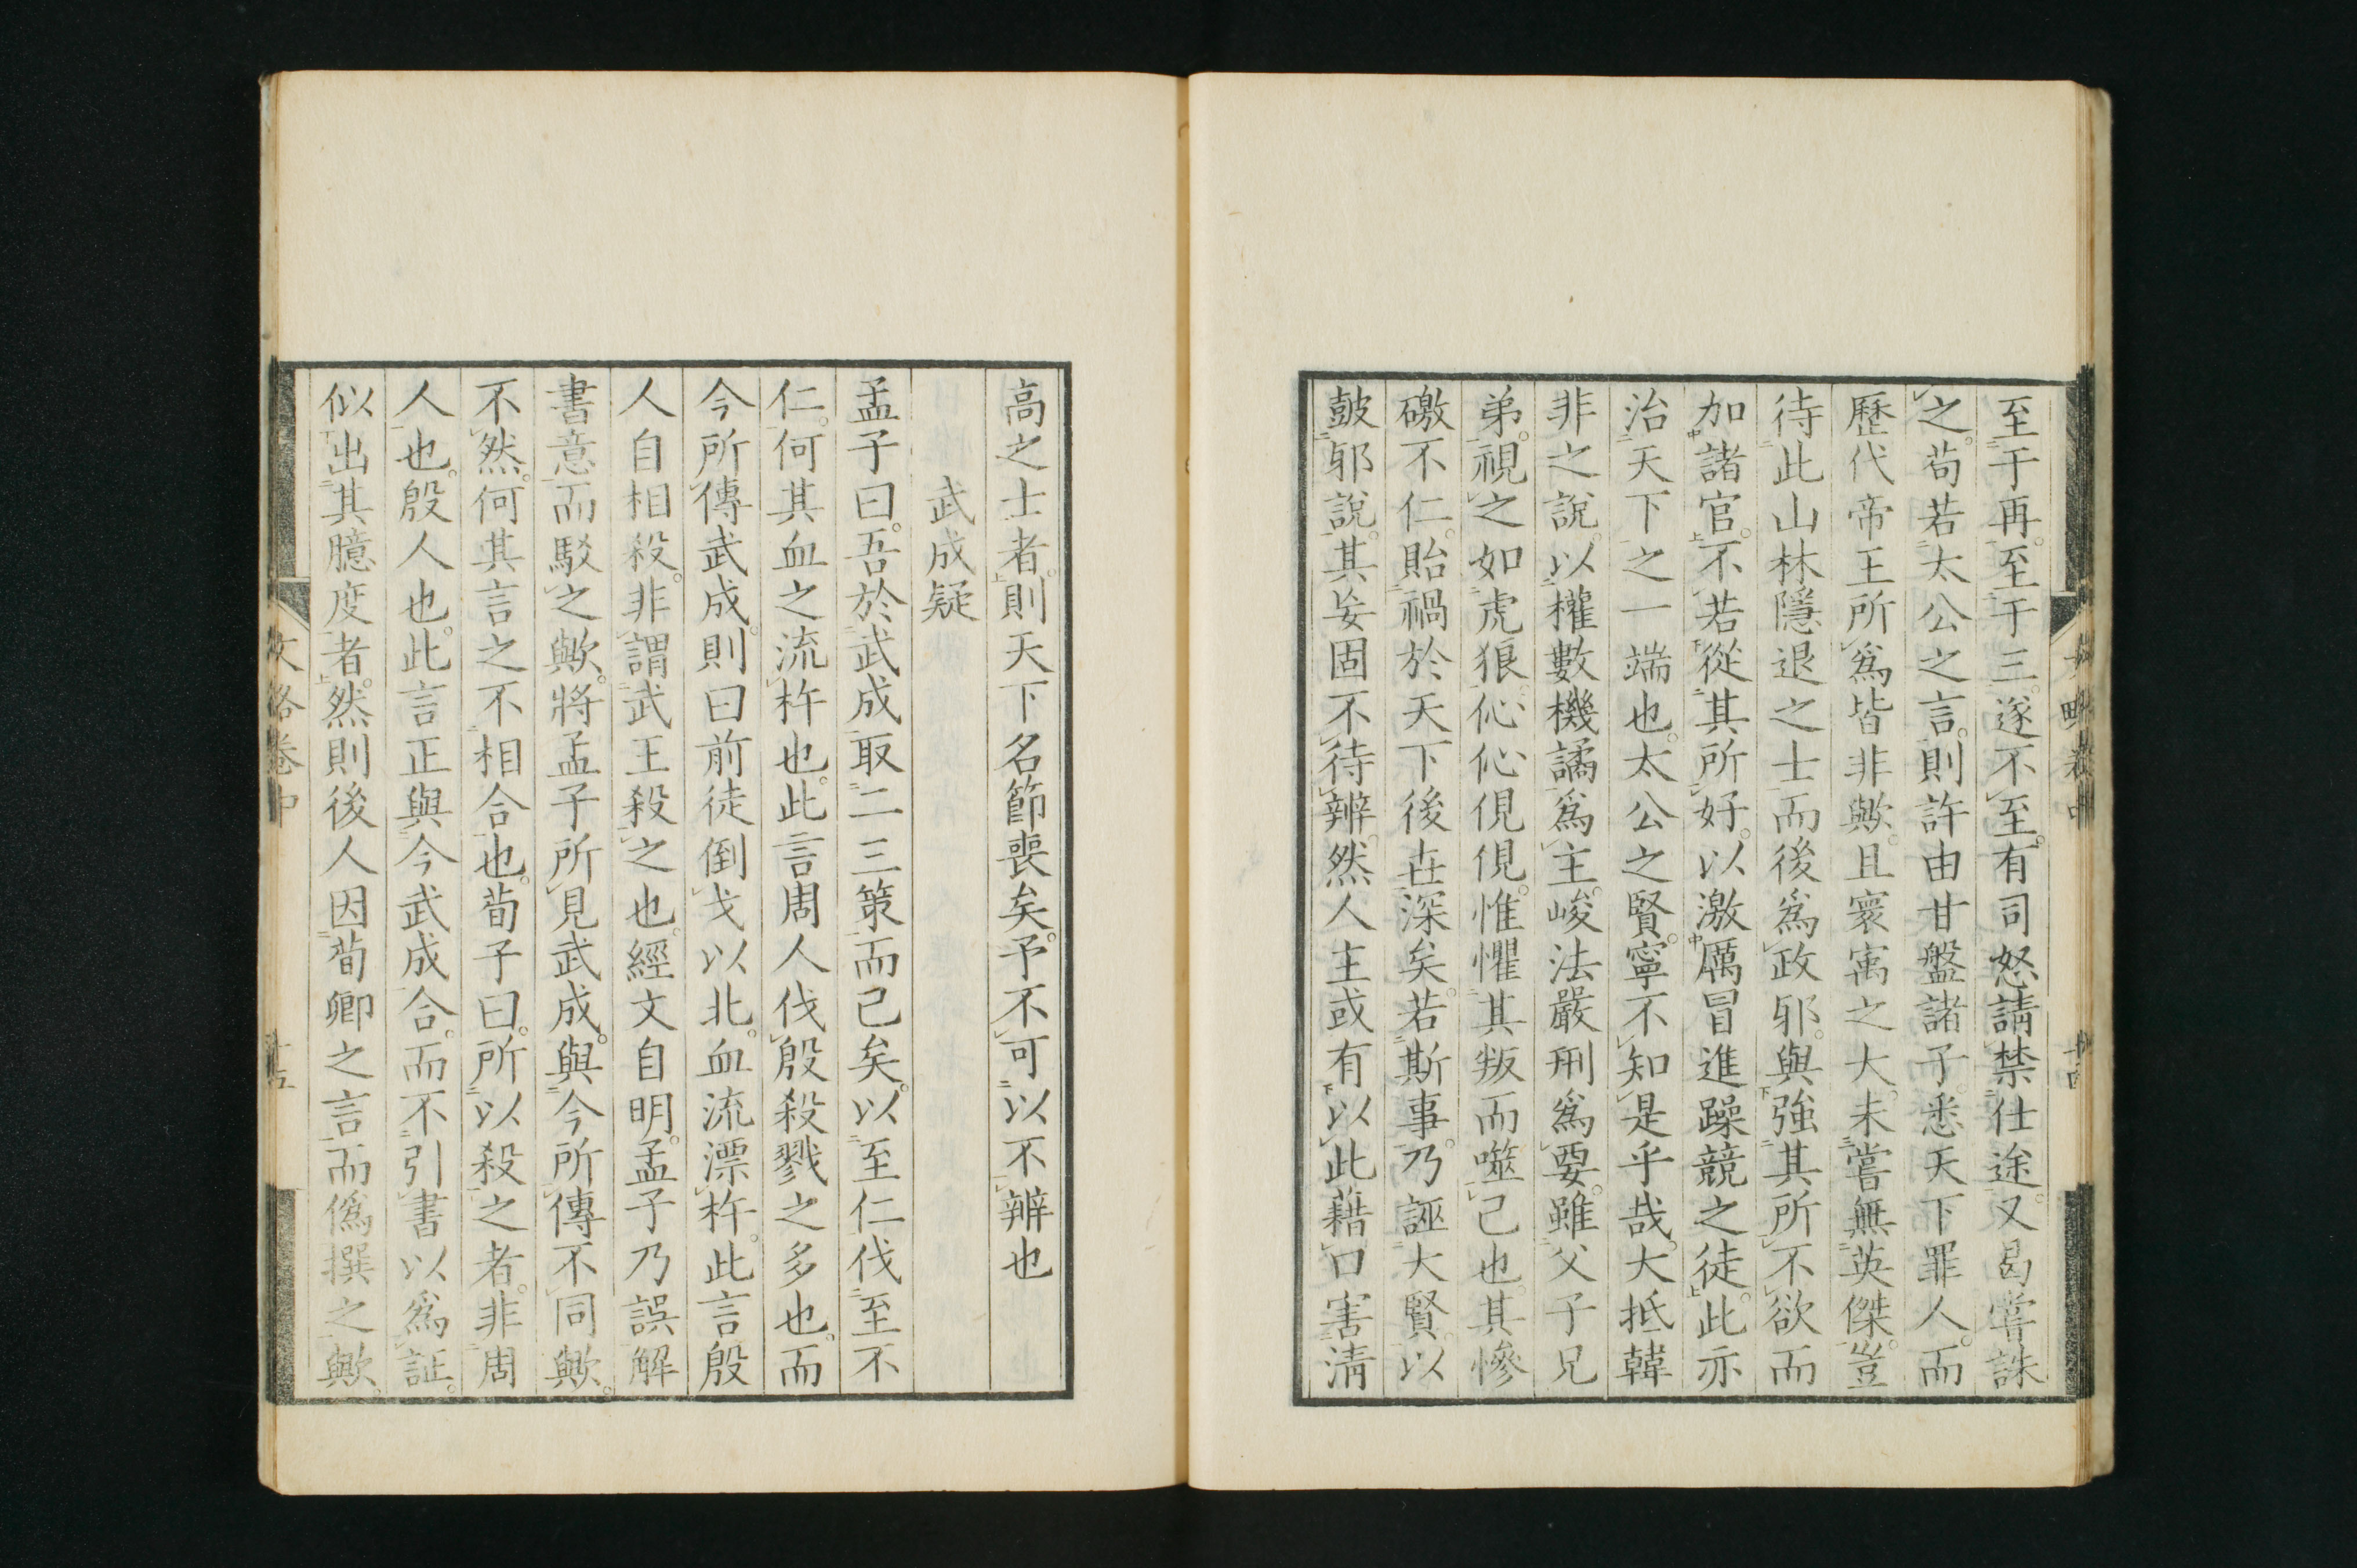 至于再。至于三。遂不至。有司怒請禁仕途。又曷嘗誅
之。苟若太公之言。則許由甘盤諸子。悉天下罪人。而
歷代帝王所爲皆非歟。且寰寓之大。未嘗無英傑。豈
待此山林隱退之士而後爲政邪。與強其所不欲而
加諸官。不若從其所好。以激厲冒進躁競之徒。此亦
治天下之一端也。太公之賢。寧不知是乎哉。大抵韓
非之說。以權數機譎爲主。峻法嚴刑爲要。雖父子兄
弟。視之如虎狼。伈伈俔俔。惟懼其叛而噬己也。其慘
礉不仁。貽禍於天下後世深矣。若斯事。乃誣大賢。以
鼓邪說。其妄固不待辨。然人主或有以此藉口害清
高之士者。則天下名節喪矣。予不可以不辨也
武成疑
孟子曰。吾於武成取二三策而已矣。以至仁伐至不
仁。何其血之流杵也。此言周人伐殷殺戮之多也。而
今所傳武成。則曰前徒倒戈以北。血流漂杵。此言殷
人自相殺。非謂武王殺之也。經文自明。孟子乃誤解
書意而駁之歟。將孟子所見武成。與今所傳不同歟。
不然。何其言之不相合也。荀子曰。所以殺之者。非周
人也。殷人也。此言正與今武成合。而不引書以爲証。
似出其臆度者。然則後人因荀卿之言而僞撰之歟。
文略卷中
十五